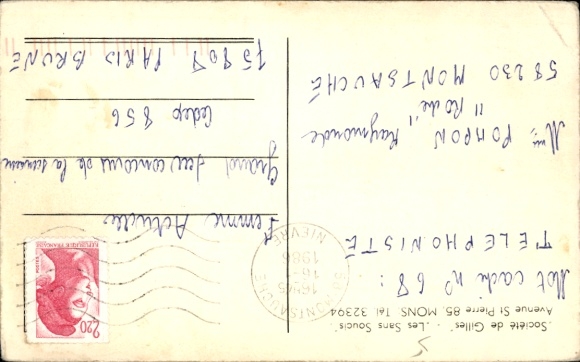 "Société de Gilles" - "Les Sans Soucis"
Avenue St Pierre 85. MONS Tél 32394
Mot caché n° 68 :
TELEPHONISTE
Mme POMPON Raymonde
"Rode"
58230 MONTSAUCHE
Femme Actuelle
Grand Jeu concours de la semaine
Cedep 856
75808 PARIS BRUNE
2,20
POSTES
REPUBLIQUE FRANÇAISE
58 MONTSAUCHE
16H05
16-
1986
NIEVRE